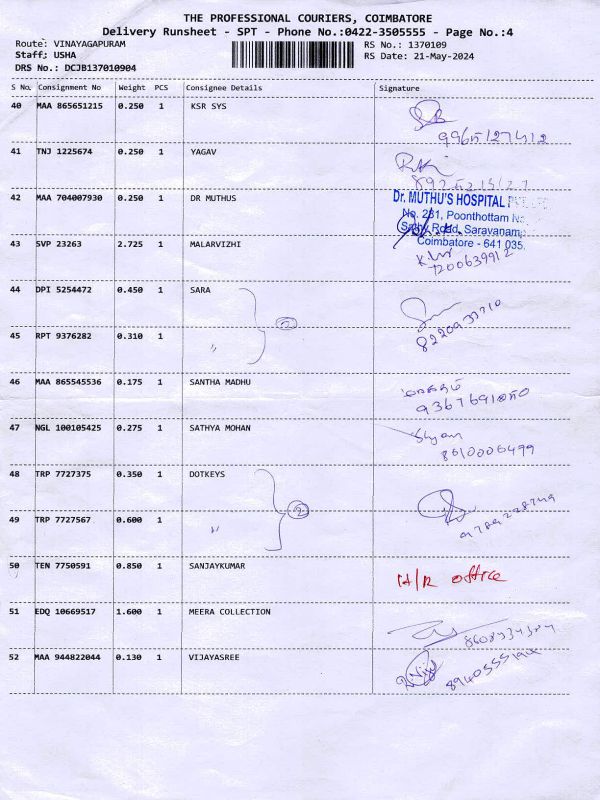 THE PROFESSIONAL COURIERS, COIMBATORE
Delivery Runsheet - SPT - Phone No.:0422-3505555 - Page No.:4
Route: VINAYAGAPURAM
RS No.: 1370109
Staff: USHA
RS Date: 21-May-2024
DRS No.: DCJB137010904
S No. Consignment No Weight PCS Consignee Details Signature
40 MAA 865651215 0.250 1 KSR SYS
9965127412
41 TNJ 1225674 0.250 1 YAGAV
42 MAA 704007930 0.250 1 DR MUTHUS
Dr. MUTHU'S HOSPITAL
No. 231, Poonthottam
Sathy Road, Saravanam
Coimbatore - 641 035.
43 SVP 23263 2.725 1 MALARVIZHI
7200639912
44 DPI 5254472 0.450 1 SARA
2
8220933710
45 RPT 9376282 0.310 1 "
46 MAA 865545536 0.175 1 SANTHA MADHU
47 NGL 100105425 0.275 1 SATHYA MOHAN
Shyam
8610006499
48 TRP 7727375 0.350 1 DOTKEYS
2
49 TRP 7727567 0.600 1 "
50 TEN 7750591 0.850 1 SANJAYKUMAR
H/R office
51 EDQ 10669517 1.600 1 MEERA COLLECTION
52 MAA 944822044 0.130 1 VIJAYASREE